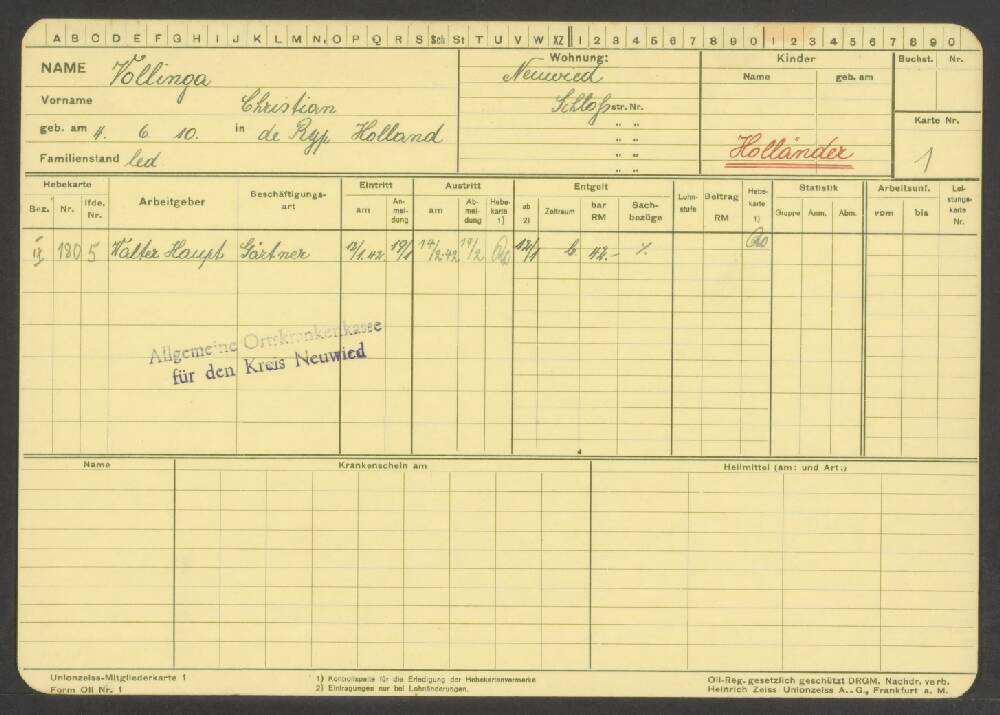 A B C D E F G H I J K L M N, O P Q R S Sch St T U V W XZ 1 2 3 4 5 6 7 8 9 0 1 2 3 4 5 6 7 8 9 0
NAME Vollinga
Vorname Christian
geb. am 4. 6. 10. in de Ryp Holland
Familienstand led
Wohnung:
Neuwied
Schloß str. Nr.
" "
" "
" "
" "
Kinder
Name geb. am
Holländer
Buchst. Nr.
Karte Nr.
1
Hebekarte Arbeitgeber Beschäftigungs-art Eintritt Austritt Entgelt Lohn-stufe Beitrag RM Hebe-karte 1) Statistik Arbeitsunf. Lei-stungs-karte Nr.
Bez. Nr. lfde. Nr. am An-mel-dung am Ab-mel-dung Hebe-karte 1) ab 2) Zeitraum bar RM Sach-bezüge Gruppe Anm. Abm. vom bis
180 5 Walter Haupt Gärtner 12/1.42 19/1 14/2.42 19/2 12/1 42.- %
Allgemeine Ortskrankenkasse
für den Kreis Neuwied
4
Name Krankenschein am Heilmittel (am: und Art:)
Unionzeiss-Mitgliederkarte 1
Form OII Nr. 1
1) Kontrollspalte für die Erledigung der Hebekartenvermerke
2) Eintragungen nur bei Lohnänderungen.
OII-Reg. gesetzlich geschützt DRGM. Nachdr. verb.
Heinrich Zeiss Unionzeiss A.-G., Frankfurt a. M.